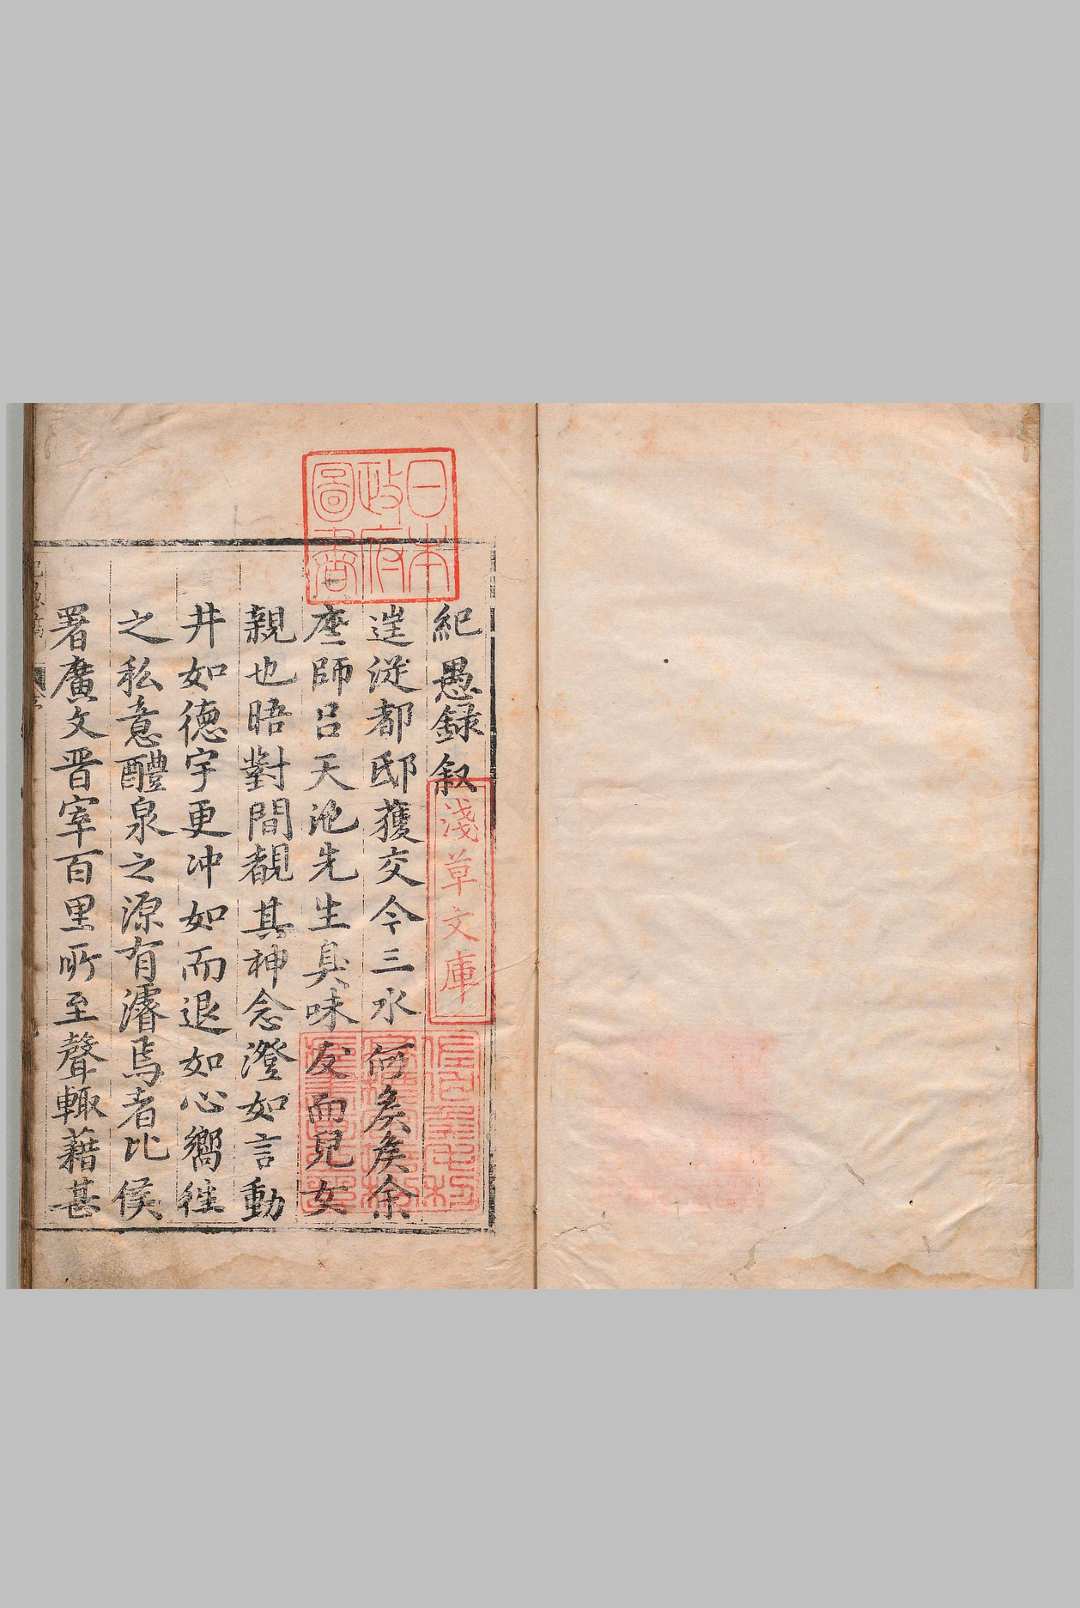 紀愚録叙
𨓏從都邸獲交今三水何矦矦余
座師吕天池先生臭味友而兒女
親也晤對間覩其神念澄如言動
井如德宇更冲如而退如心嚮徃
之私意醴泉之源有濬焉者比侯
署廣文晋宰百里所至聲輙藉甚
日本
政府
圖書
淺草文庫